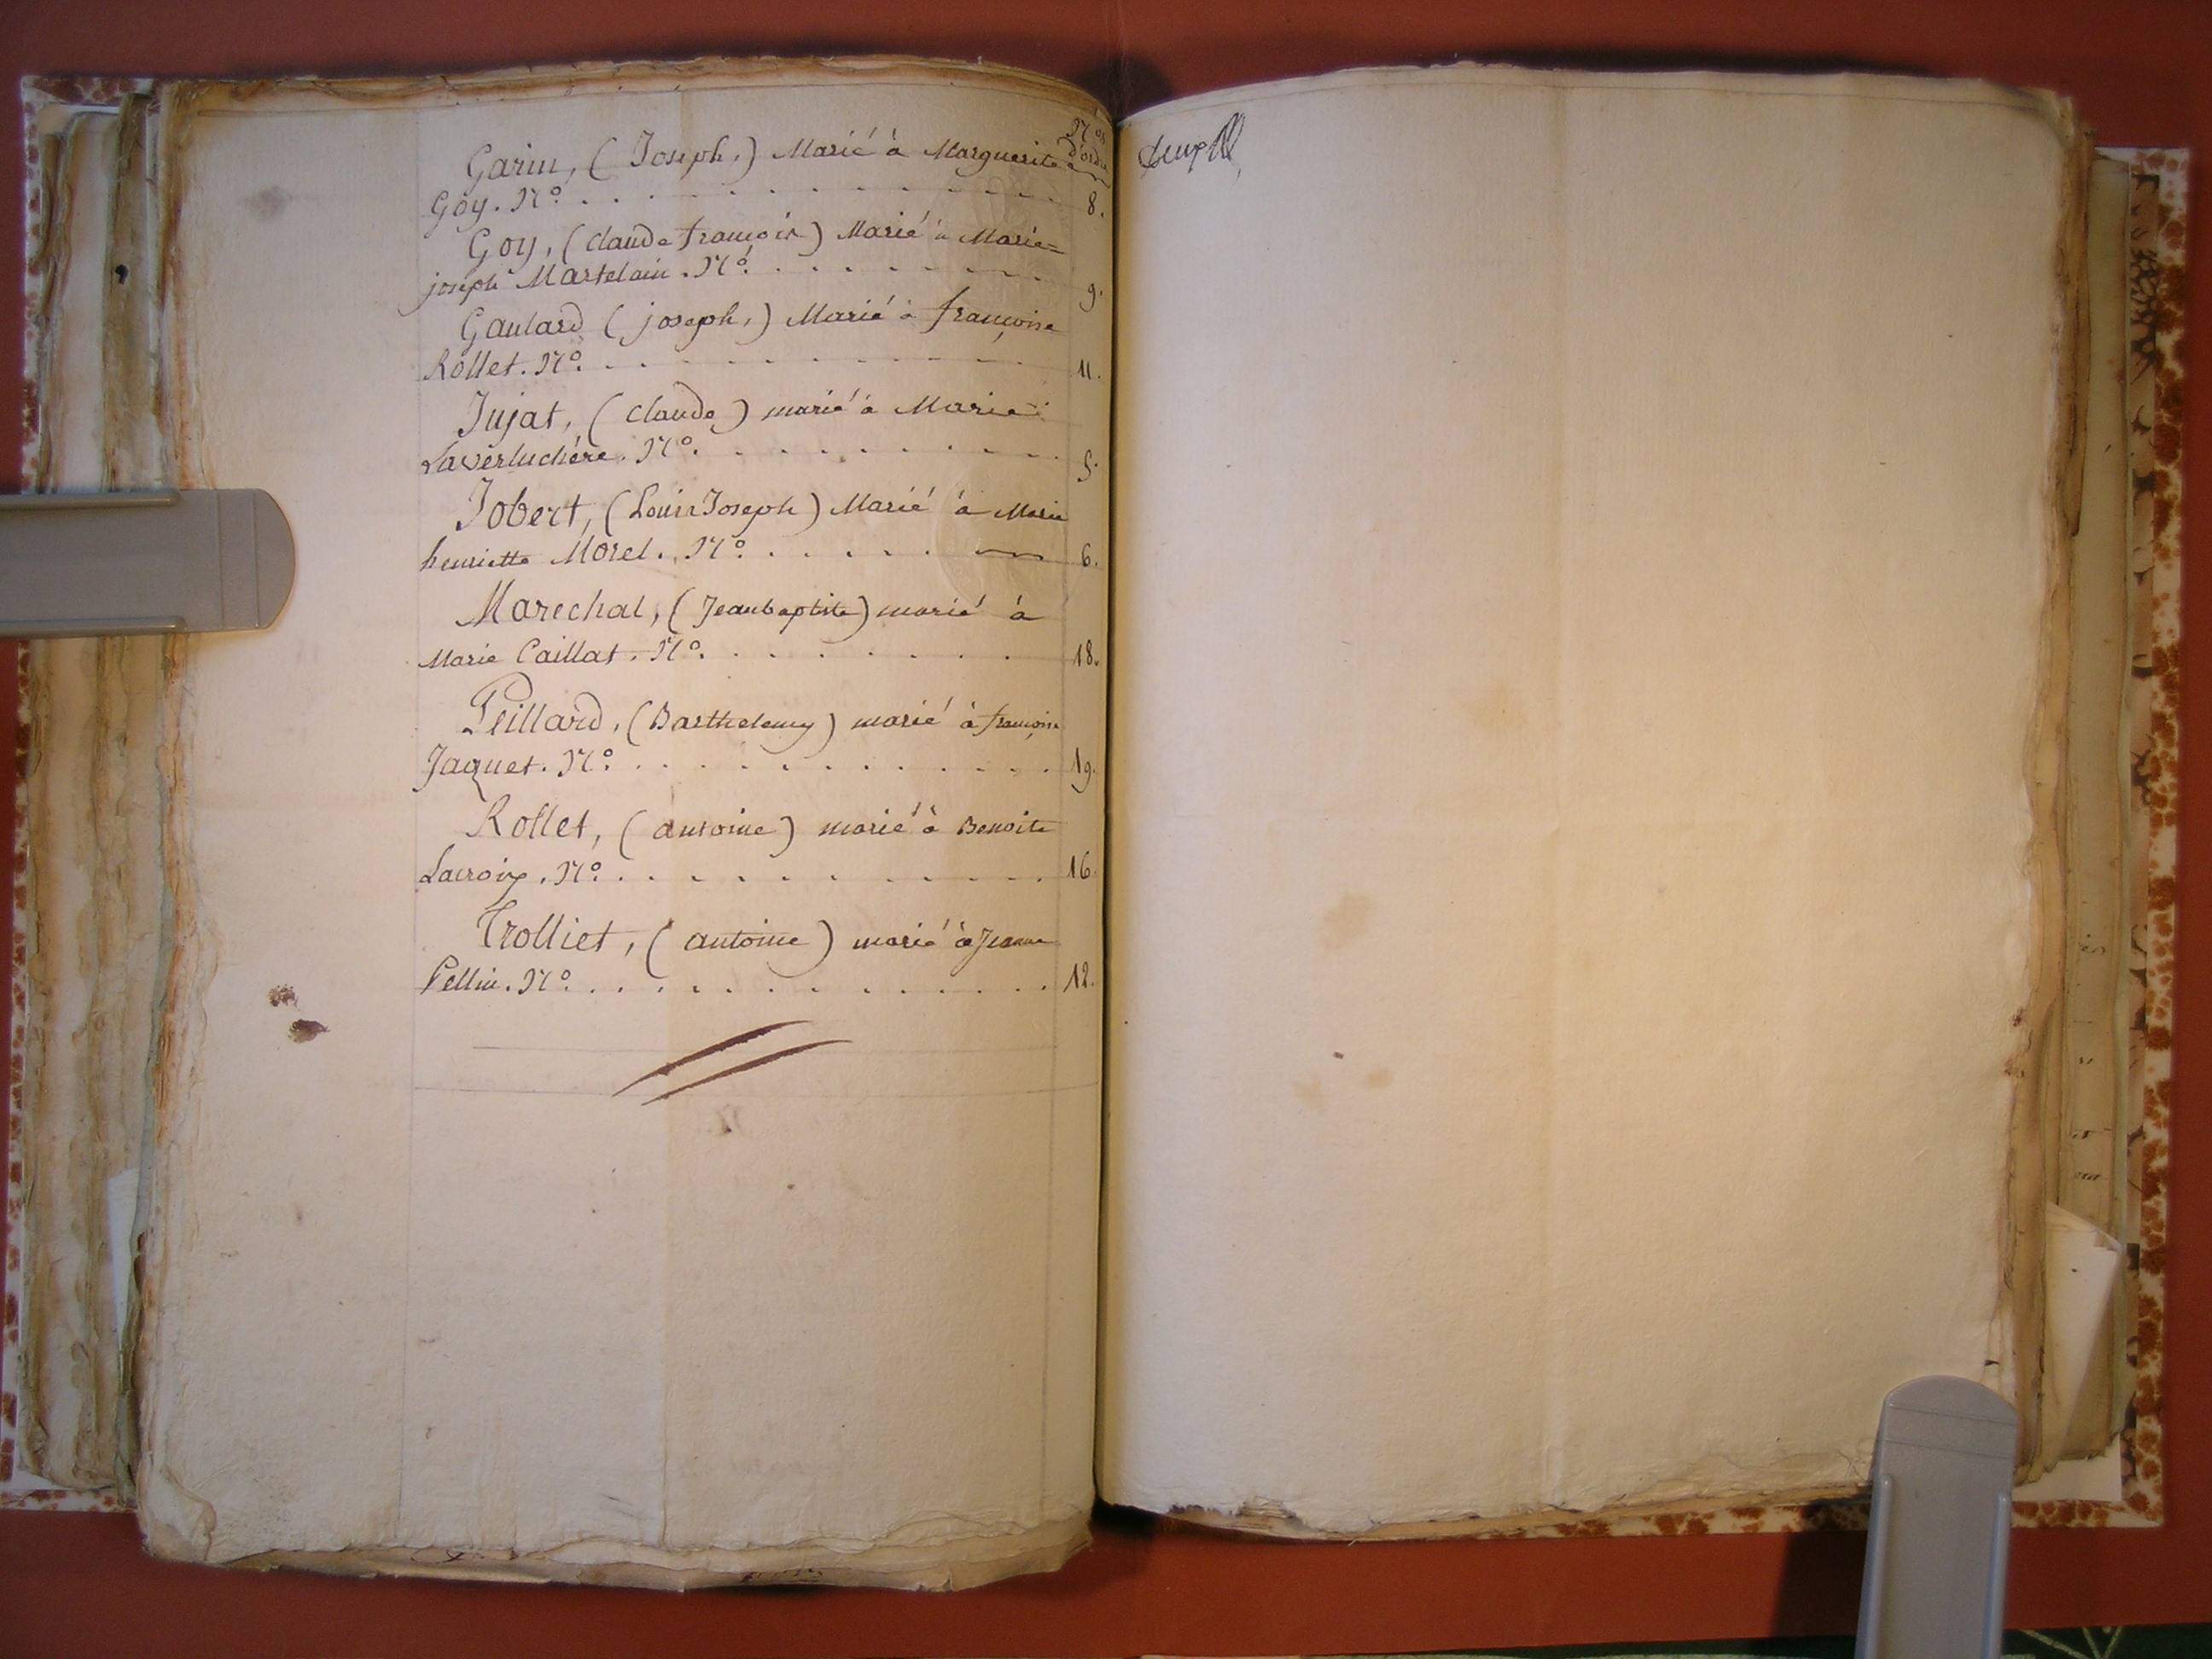 Nos
d'ordre
Garin, (Joseph,) Marié à Marguerite
Goy. No. . . . . . . . . . . . 8.
Goy, (claude françois) Marié à Marie=
joseph Martelain. No. . . . . . . . . 9.
Gaulard (joseph,) Marié à françoise
Rollet. No. . . . . . . . . . . 11.
Jujat, (claude) marié à Marie
Laverluchére. No. . . . . . . . . . 5.
Jobert, (Louis Joseph) Marié à Marie
henriette Morel. No. . . . . . 6.
Marechal, (Jeanbaptiste) marié à
Marie Caillat. No. . . . . . . . 18.
Peillard, (Barthelemy) marié à françoise
Jaquet. No. . . . . . . . . . . . 19.
Rollet, (antoine) marié à Benoite
Lacroix. No. . . . . . . . . . . . 16.
Trolliet, (antoine) marié à Jeanne
Pellin. No. . . . . . . . . . . . . 12.